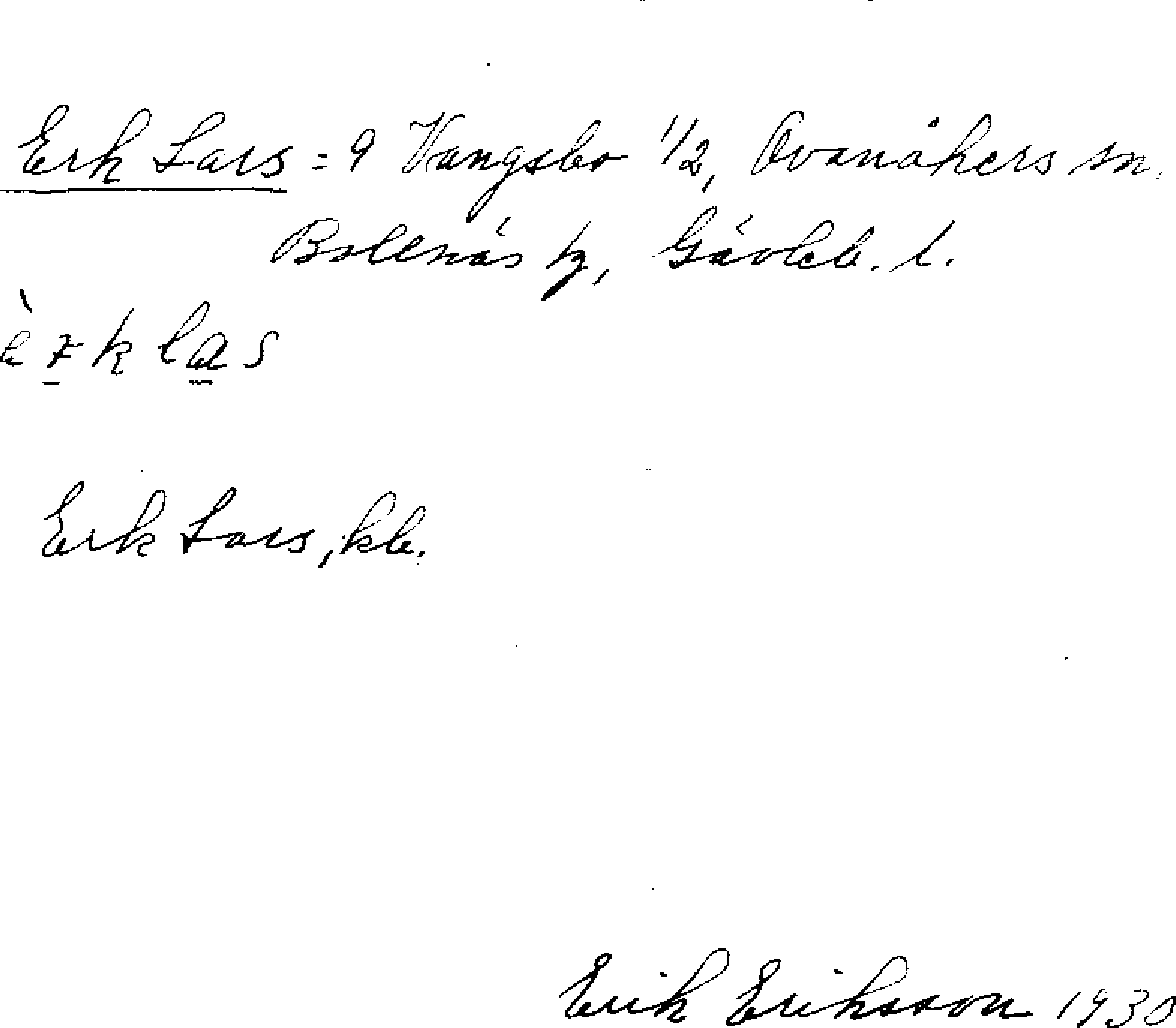 Erk Lars = 9 Vangsbo 1/2, Ovanåkers sn.
Bollnäs tg, Gävleb. l.
Erk Lars, kb.
Erik Eriksson 1930